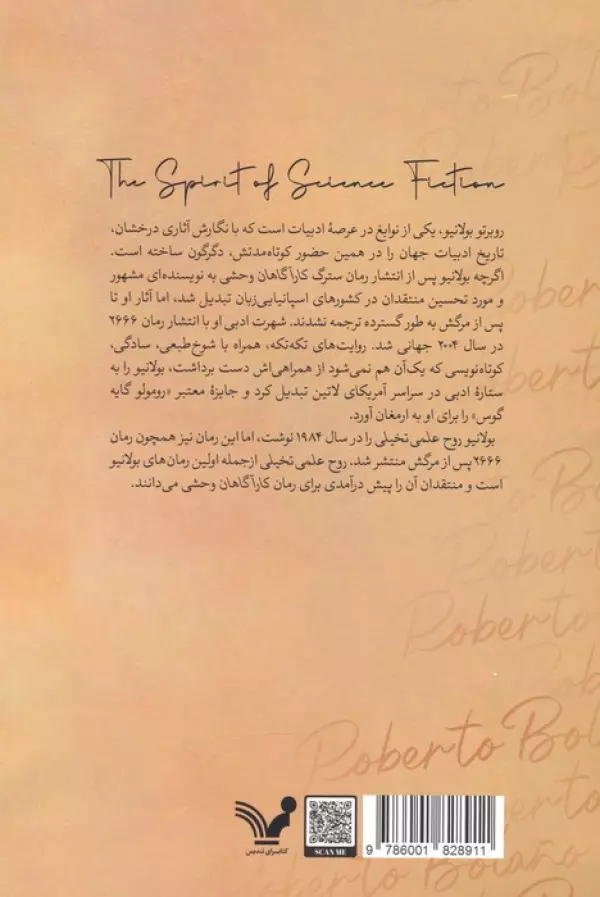 The Spirit of Science Fiction
روبرتو بولانیو، یکی از نوابغ در عرصهٔ ادبیات است که با نگارش آثاری درخشان،
تاریخ ادبیات جهان را در همین حضور کوتاه‌مدتش، دگرگون ساخته است.
اگرچه بولانیو پس از انتشار رمان سترگ کارآگاهان وحشی به نویسنده‌ای مشهور
و مورد تحسین منتقدان در کشورهای اسپانیایی‌زبان تبدیل شد، اما آثار او تا
پس از مرگش به طور گسترده ترجمه نشدند. شهرت ادبی او با انتشار رمان ۲۶۶۶
در سال ۲۰۰۴ جهانی شد. روایت‌های تکه‌تکه، همراه با شوخ‌طبعی، سادگی،
کوتاه‌نویسی که یک‌آن هم نمی‌شود از همراهی‌اش دست برداشت، بولانیو را به
ستارهٔ ادبی در سراسر آمریکای لاتین تبدیل کرد و جایزهٔ معتبر «رومولو گایه
گوس» را برای او به ارمغان آورد.
بولانیو روح علمی تخیلی را در سال ۱۹۸۴ نوشت، اما این رمان نیز همچون رمان
۲۶۶۶ پس از مرگش منتشر شد. روح علمی تخیلی ازجمله اولین رمان‌های بولانیو
است و منتقدان آن را پیش درآمدی برای رمان کارآگاهان وحشی می‌دانند.
Roberto Bol
Roberto
Roberto
Roberto Bol
Roberto Bolaño
کتابسرای تندیس
SCAN ME
9 786001 828911